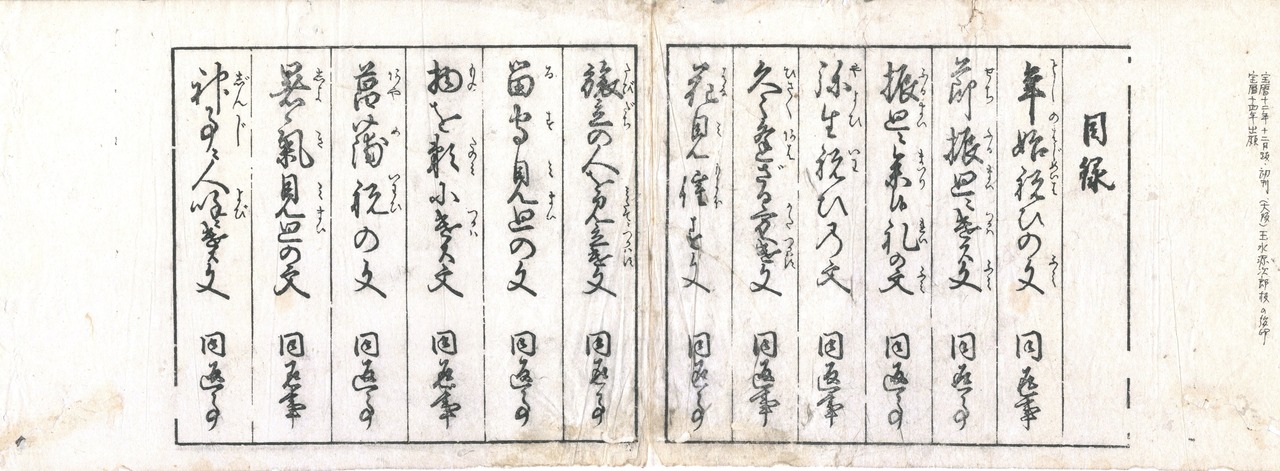 宝暦十二年十二月改・初刊（大阪）玉水源次郎板の後印
宝暦十四年出願
目録
年始祝ひの文 同返事
節振廻に遣ス文 同返事
振廻に参候礼の文 同返事
弥生祝ひの文 同返事
久く逢ざる方へ遣文 同返事
花見催す文 同返事
旅立の人へ見立遣文 同返事
留守見廻の文 同返事
物を頼に遣ス文 同返事
菖蒲祝の文 同返事
暑気見廻の文 同返事
神事に人呼に遣ス文 同返事